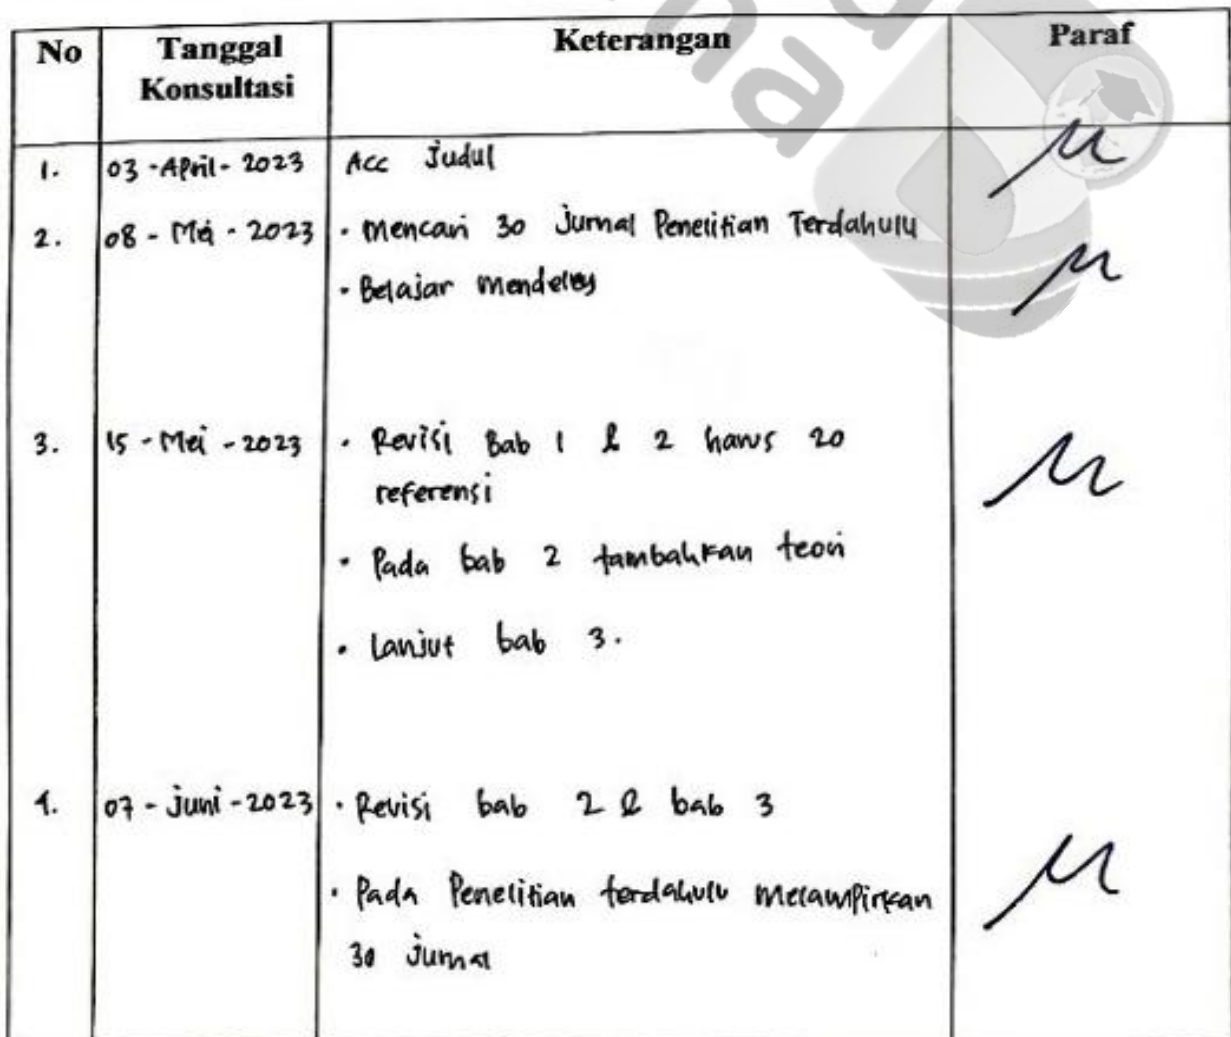 No Tanggal Konsultasi Keterangan Paraf
1. 03 - April - 2023 Acc Judul
2. 08 - Mei - 2023 • Mencari 30 Jurnal Penelitian Terdahulu
• Belajar mendeley
3. 15 - Mei - 2023 • Revisi Bab 1 & 2 harus 20
referensi
• Pada bab 2 tambahkan teori
• Lanjut bab 3.
4. 07 - Juni - 2023 • Revisi bab 2 & bab 3
• Pada Penelitian terdahulu melampirkan
30 Jurnal